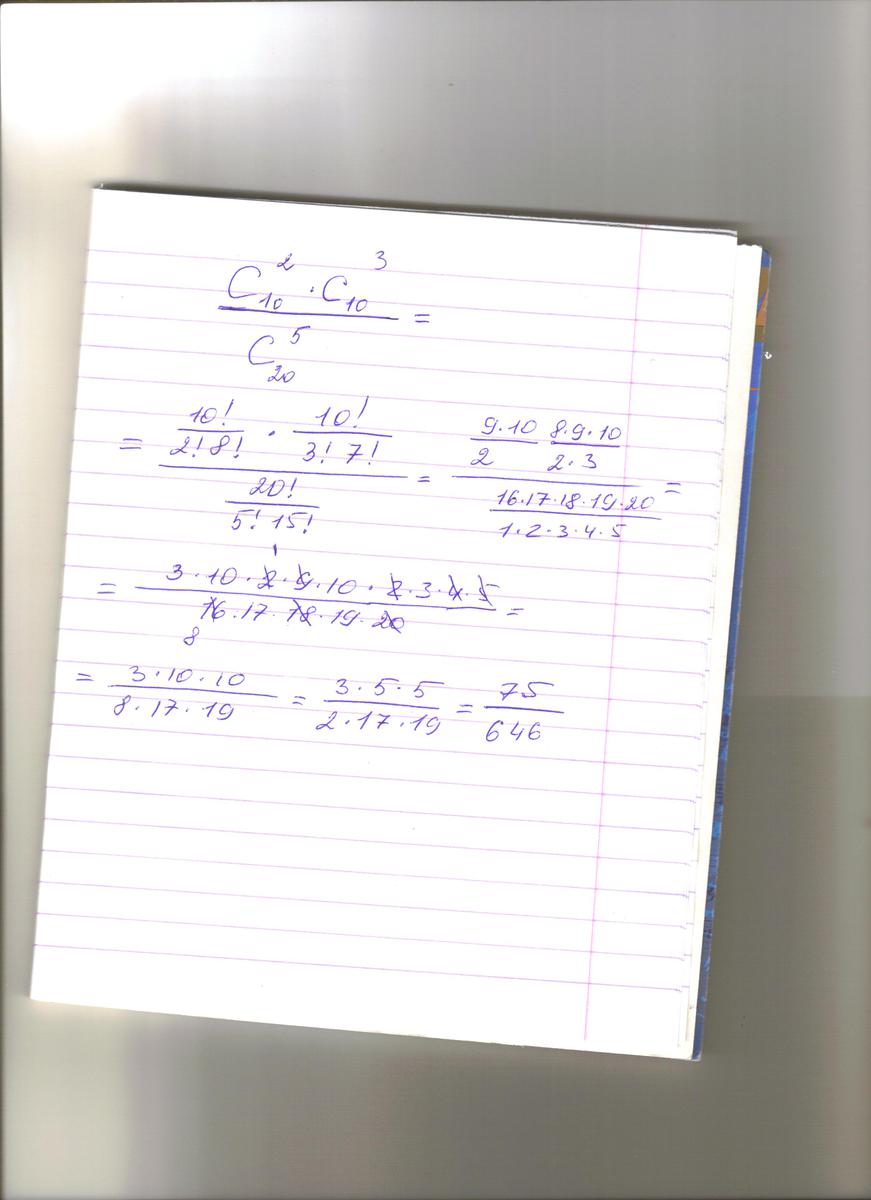 C₁₀² · C₁₀³ / C₂₀⁵ =
= 10!/(2! 8!) · 10!/(3! 7!) / 20!/(5! 15!) = 9·10/2 8·9·10/(2·3) / 16·17·18·19·20/(1·2·3·4·5) =
= 3·10·2·9·10·2·3·4·5 / 16·17·18·19·20 =
1
8
= 3·10·10 / 8·17·19 = 3·5·5 / 2·17·19 = 75/646